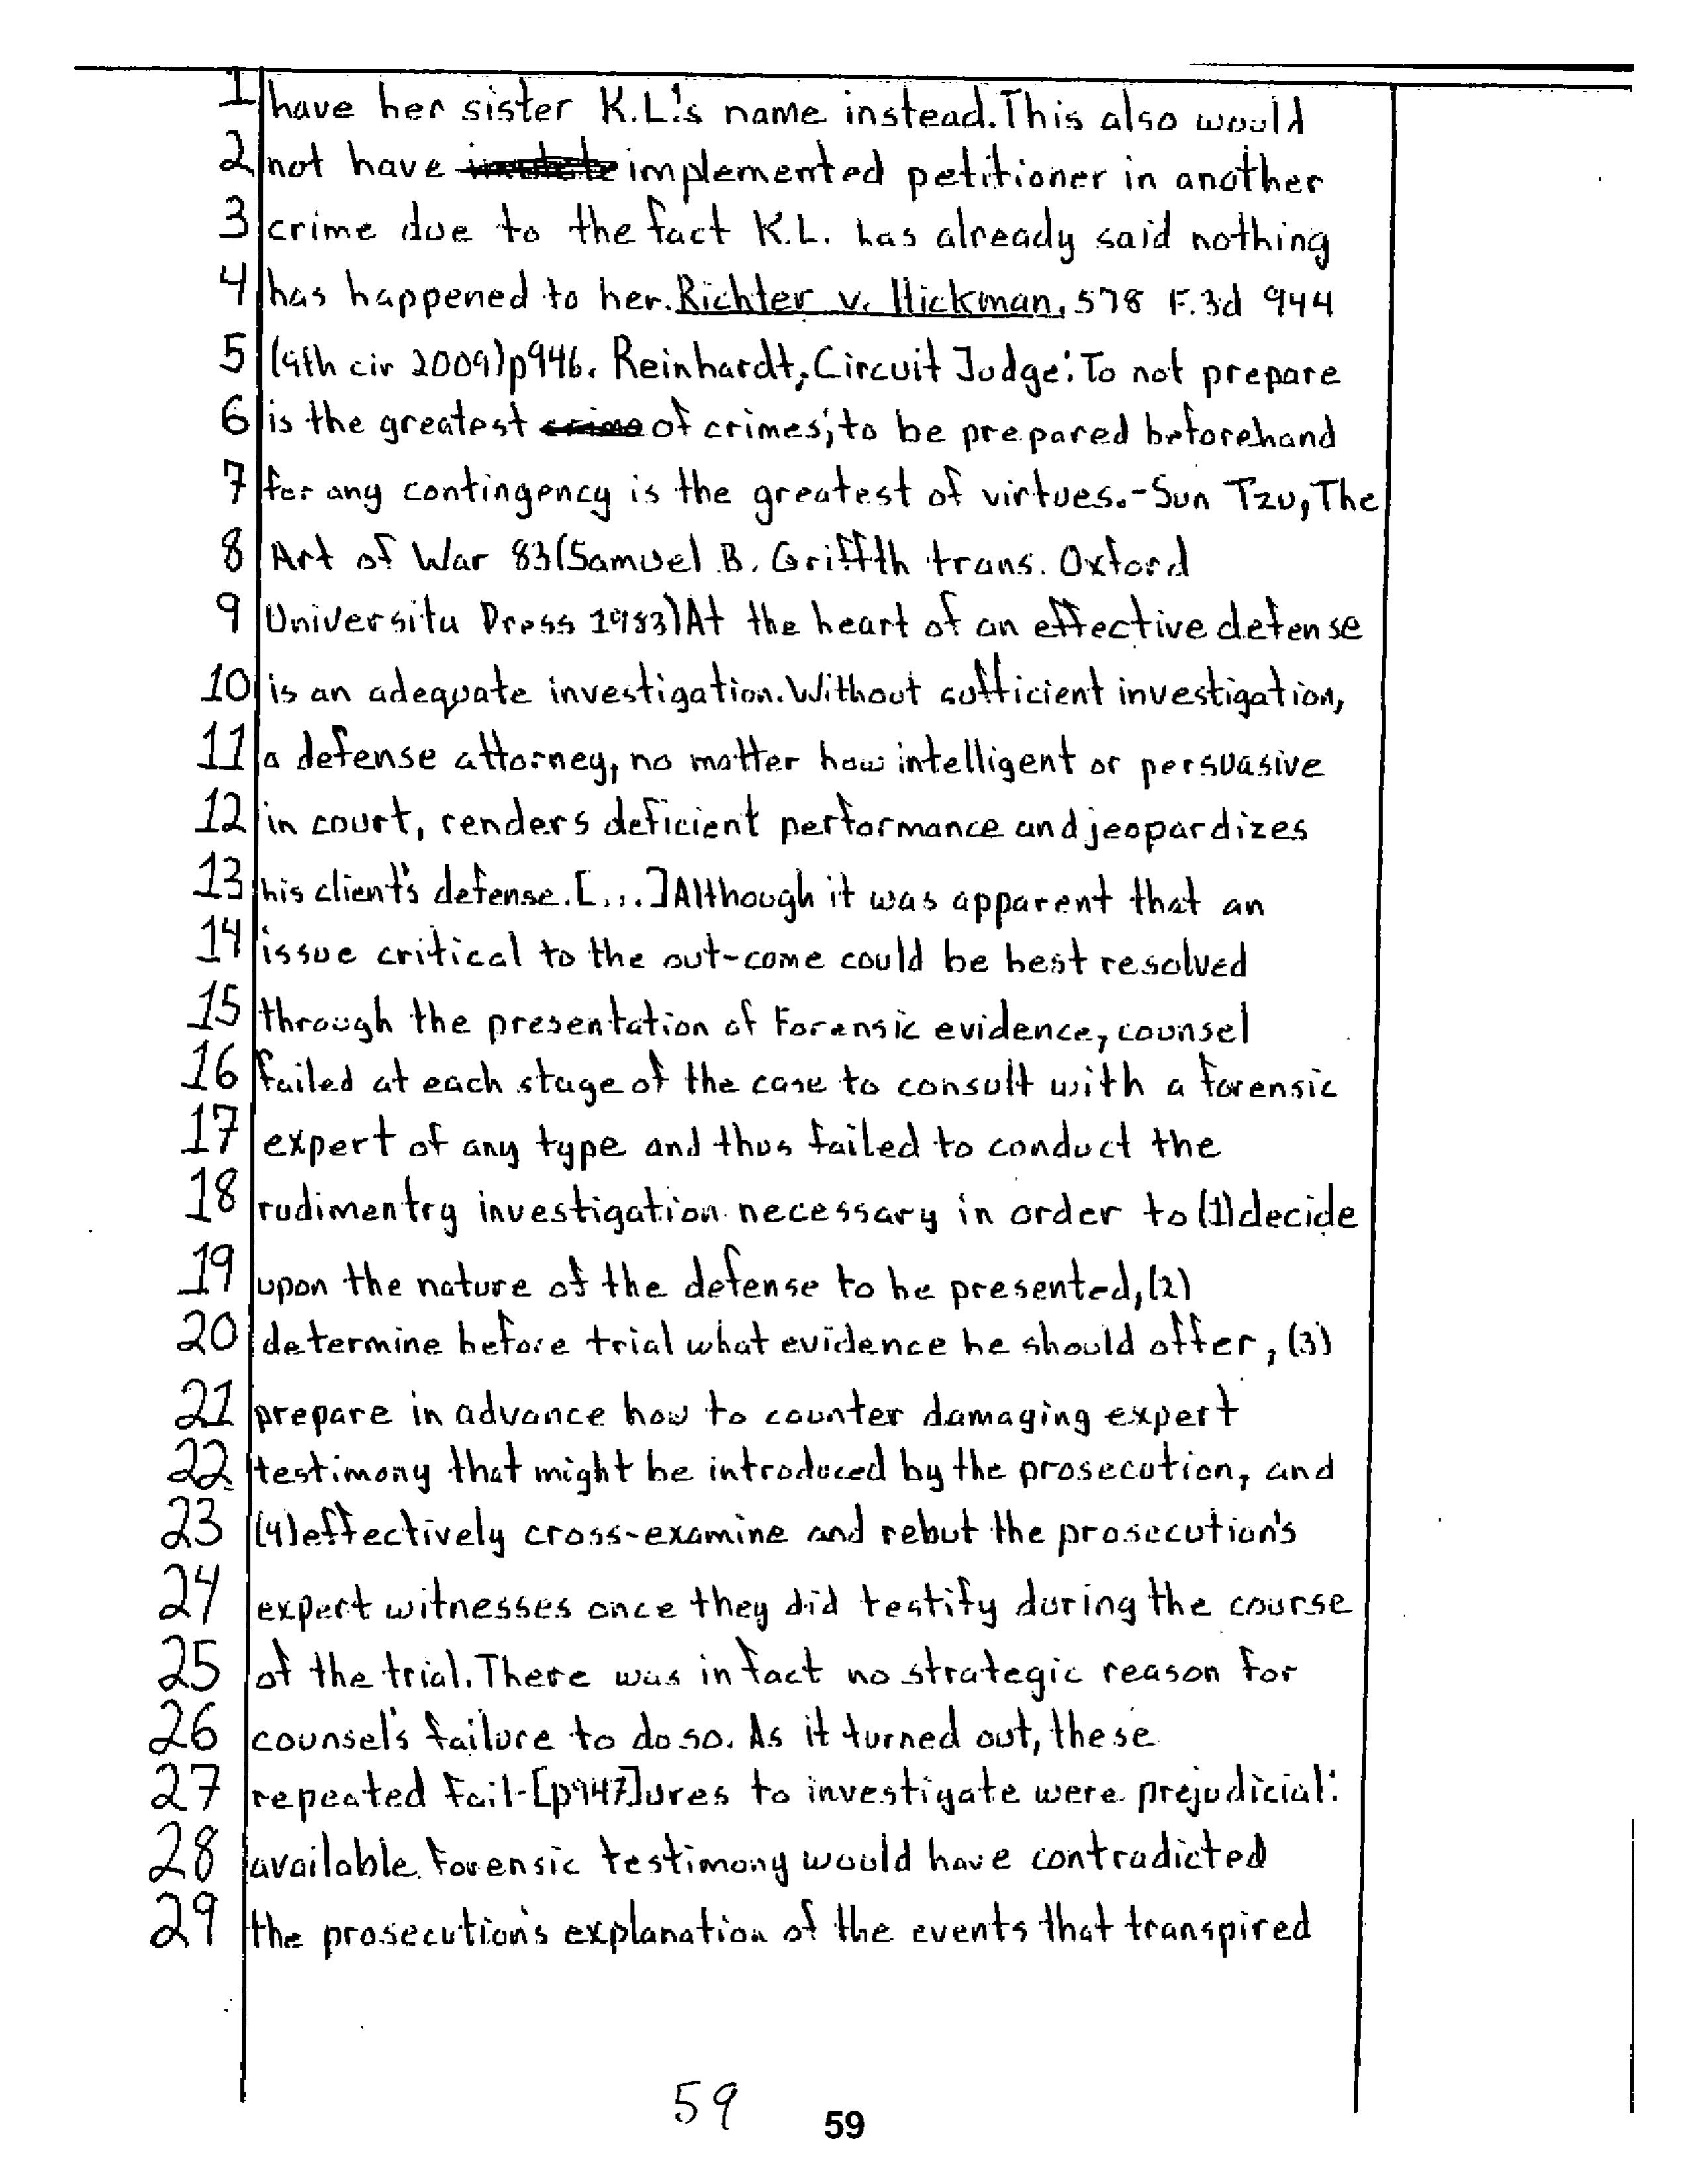 1 have her sister K.L.'s name instead. This also would
2 not have implemented petitioner in another
3 crime due to the fact K.L. has already said nothing
4 has happened to her. Richter v. Hickman, 578 F.3d 944
5 (9th cir 2009)p946. Reinhardt, Circuit Judge: To not prepare
6 is the greatest of crimes; to be prepared beforehand
7 for any contingency is the greatest of virtues.-Sun Tzu, The
8 Art of War 83(Samuel B. Griffth trans. Oxford
9 Universitu Press 1983)At the heart of an effective defense
10 is an adequate investigation. Without sufficient investigation,
11 a defense attorney, no matter how intelligent or persuasive
12 in court, renders deficient performance and jeopardizes
13 his client's defense. [...] Although it was apparent that an
14 issue critical to the out-come could be best resolved
15 through the presentation of Forensic evidence, counsel
16 failed at each stage of the case to consult with a forensic
17 expert of any type and thus failed to conduct the
18 rudimentry investigation necessary in order to (1)decide
19 upon the nature of the defense to be presented, (2)
20 determine before trial what evidence he should offer, (3)
21 prepare in advance how to counter damaging expert
22 testimony that might be introduced by the prosecution, and
23 (4)effectively cross-examine and rebut the prosecution's
24 expert witnesses once they did testify during the course
25 of the trial. There was in fact no strategic reason for
26 counsel's failure to do so. As it turned out, these
27 repeated fail-[p947]ures to investigate were prejudicial:
28 available forensic testimony would have contradicted
29 the prosecution's explanation of the events that transpired
59
59